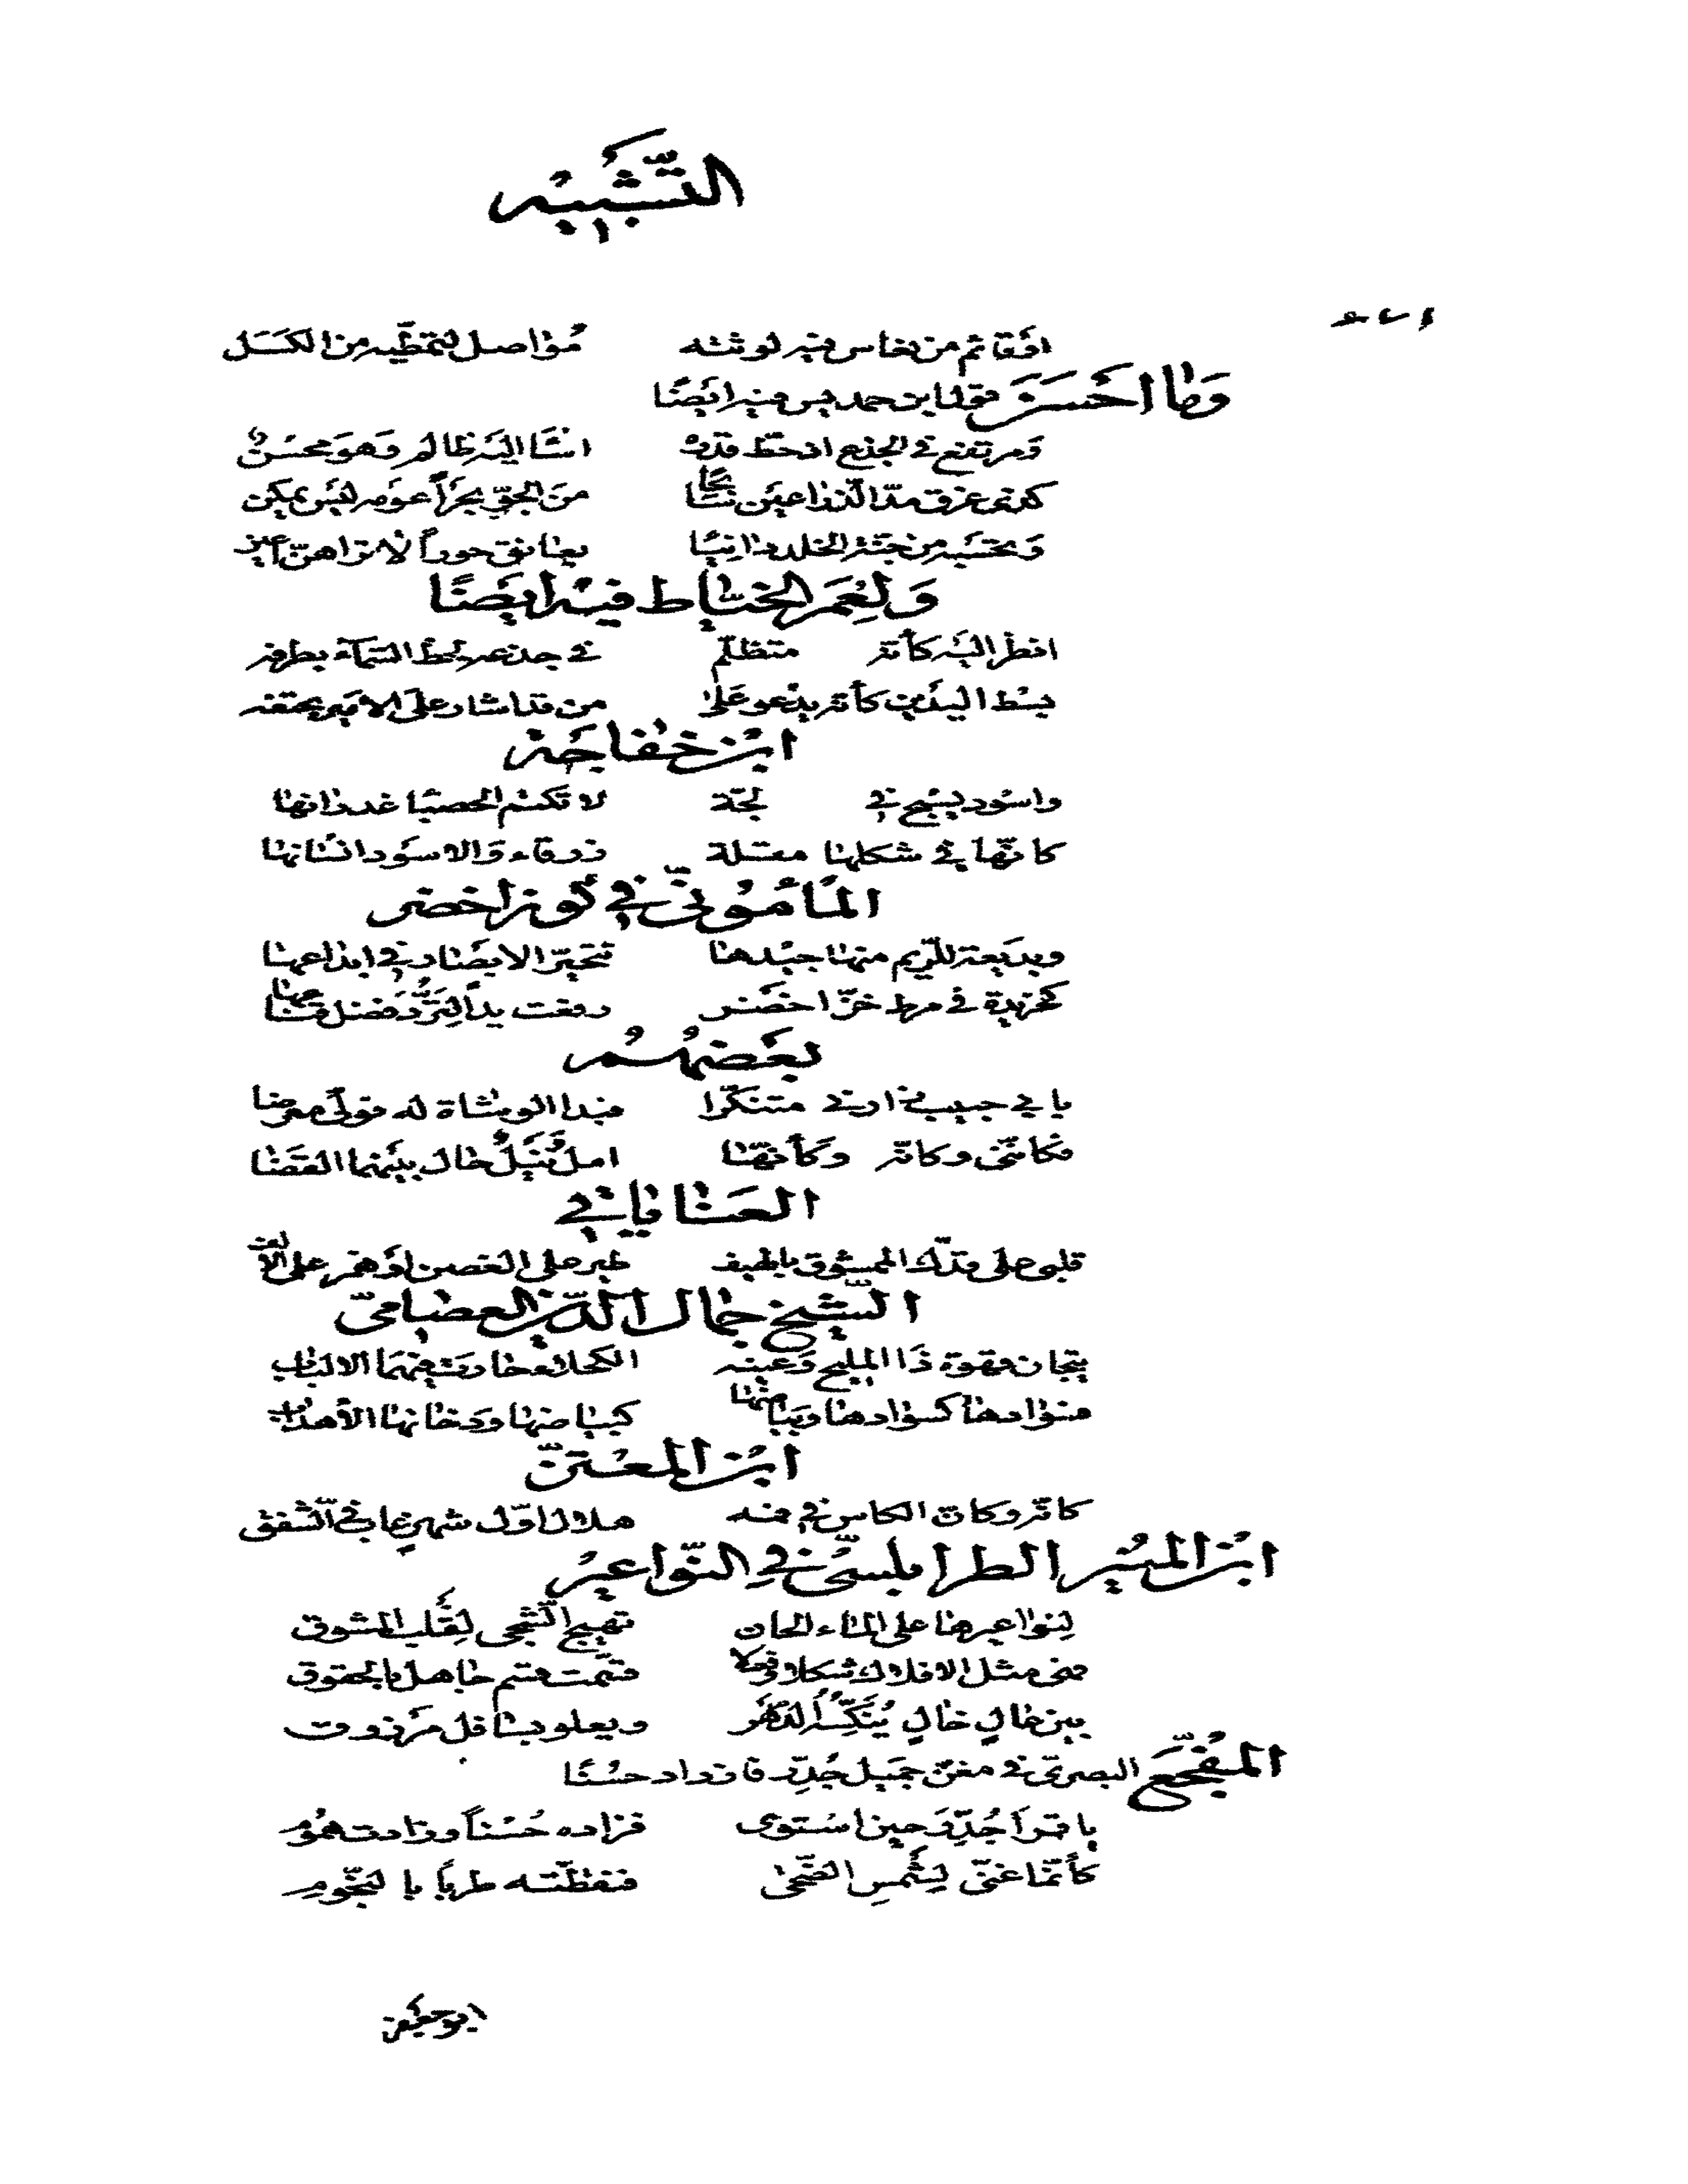 التَّشبيه
او قائم من نعاس فيه لوثته مُواصل لتمطّيه من الكسَل
وَما احْسَن قول ابن حمديس فيه ايضًا
وَمرتفع في الجذع اذ حطّ قدره اسَا اليه ظالم وَهوَ محسنُ
كذى غرق مدّ الذراعين سَابحًا منَ الجوّ بحرًا عومه ليسَ يمكن
وَتحسَبه من جنّة الخلد دانيًا يعانق حورًا لا تراهنّ اعين
وَلِعُمَر الخيّاط فيه ايضًا
انظر اليه كأنه متظلّم في جذعه لحظ السّمآء بطرفه
بسَط اليدَين كأنه يدْعو عَلى من قد اشار على الامير بحتفه
ابن خفاجَة
واسْود يسْبح في لجّة لا تكتم الحصبَا غدرانها
كانّها في شكلها مقلة زرقاء وَالاسوَد انسَانها
المأموُنى في كوز اخضر
وبديعة للرّيم منها جيْدها تتحيّر الابصَار في ابداعها
كخريدة في مرط خزّ اخضَر رفعت يدًا لِتَرُدَّ فضل قناعها
بعَضهُم
بابي حبيب زارني متنكّرا فبدا الوشاة له فولّى معرضا
فكانّنى وكانّه وكأنّهم املٌ ونَيلٌ حال بينهما القضَا
العَناياتي
قلبى على قدّك الممشوق بالهيف طير على الغصن اوهمز على الالف
الشّيخ جمال الدّين العصامىّ
فنجان قهوة ذَا المليح وَعينه الكحلاء حارت فيهمَا الالباب
فسوادها كسوادها وبيَاضها كبياضها ودخانها الأهداب
ابن المعتزّ
كانّه وكانّ الكاس في فمه هلال اوّل شهرٍ غاب في الشّفق
ابن المنير الطرابلسىّ في النّواعيرُ
لِنواعيرها على الماء الحان تهيج الشّجى لِقَلب المشوق
فهى مثل الافلاك شكلا وفعلا قسّمت قسم جاهل بالحقوق
بين عالٍ خالٍ يُنَكِّسُه الدّهَر ويعلو بسَافل مَرزوق
المفُجّعَ البصرىّ في مغنّ جميل جُدِّر فازداد حسْنًا
يا قمرًا جُدِّرَ حين اسْتوى فزاده حُسْنًا وزادت همُوم
كأنّما غنّى لِشَمسِ الضّحى فنقطّته طربًا بالنجّوم
ابو حفص